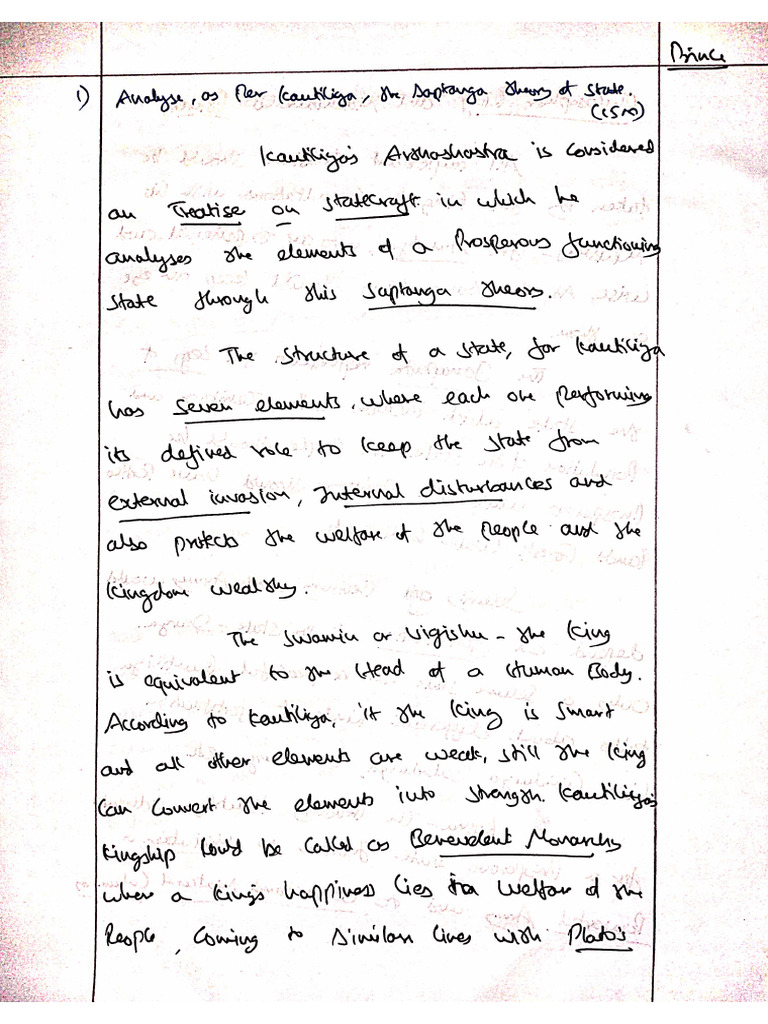 Prince
1) Analyse, as Per Kautiliya, the Saptanga theory of State.
(15M)
Kautiliya's Arthashastra is Considered
an Treatise on Statecraft in which he
analyses the elements of a Prosperous functioning
State through this Saptanga theory.
The structure of a state, for Kautiliya
has Seven elements, where each one Performing
its defined role to keep the State from
external invasion, Internal disturbances and
also protects the welfare of the People and the
Kingdom wealthy.
The Swamin or Vigishu - the King
is equivalent to the Head of a Human Body.
According to Kautiliya, if the King is Smart
and all other elements are weak, still the King
Can Convert the elements into strength. Kautiliya's
Kingship Could be Called as Benevelent Monarchy
where a King's happiness lies in a Welfare of the
People, Coming to Similar lines with Plato's